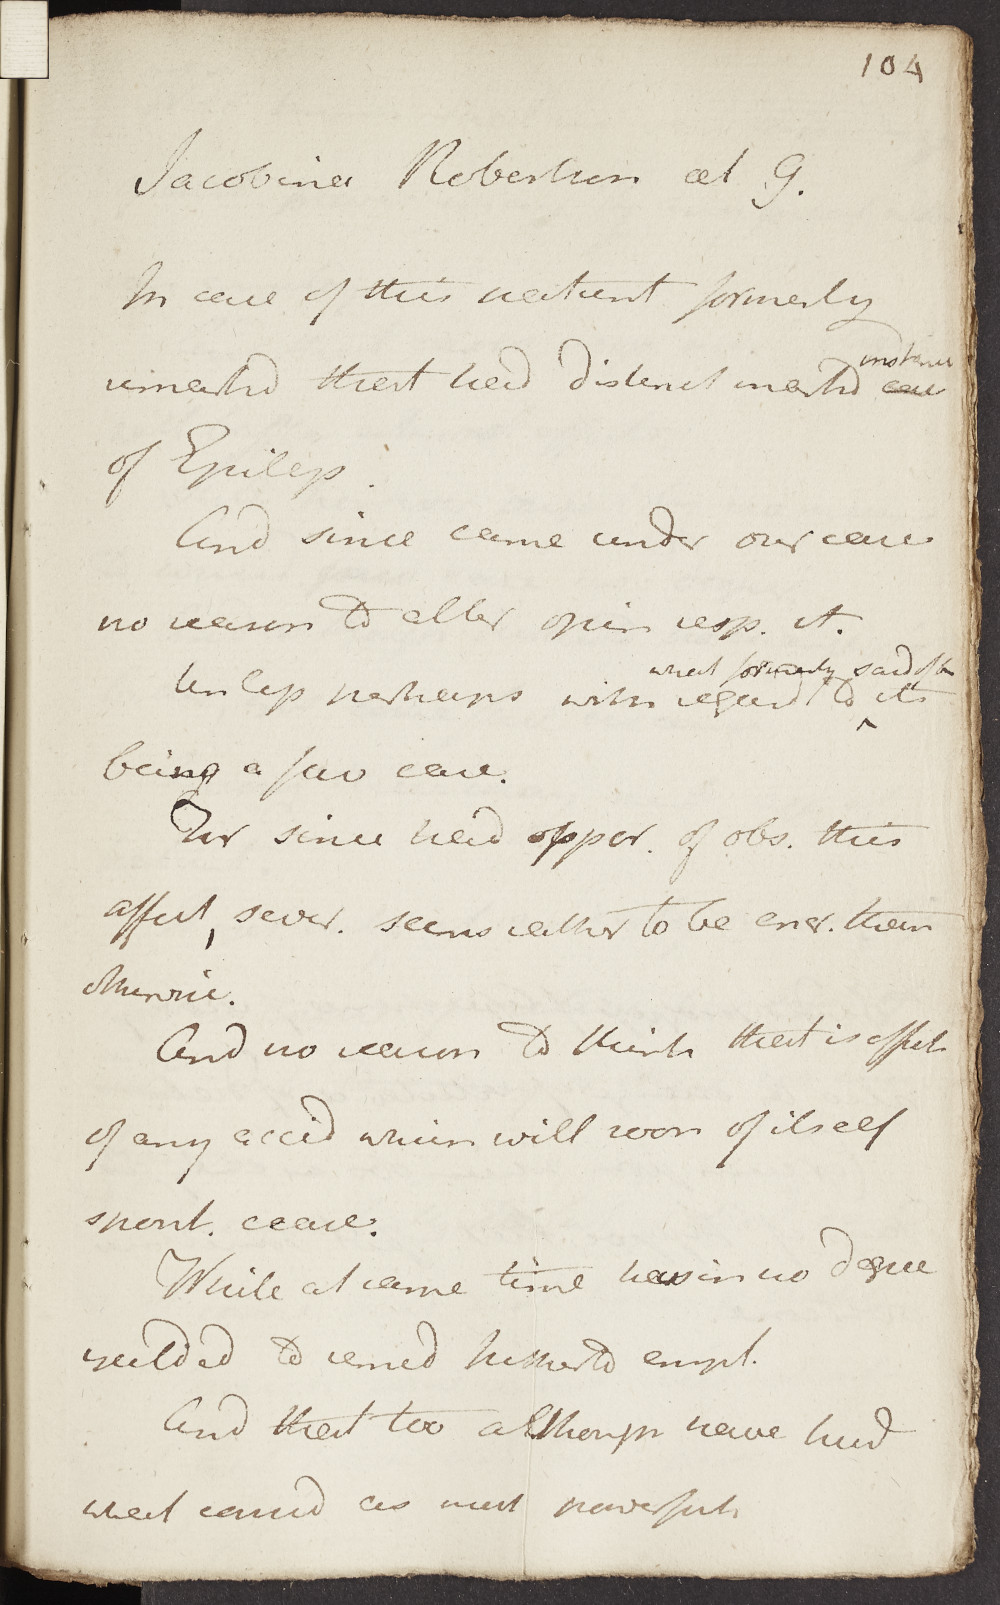 104
Jacobina Robertson aet 9.
In case of this patient formerly
remarkd that had distinct markd instance case
of Epileps.
And since came under our care
no reason to alter opin resp. it.
Unless perhaps with regard to what formerly said of its
being a fav case.
For since had oppor. of obs. this
affect, sever. seems rather to be encr. than
otherwise.
And no reason to think that is effect
of any accid which will soon of itself
spont. cease.
While at same time has in no degree
yeilded to remed hitherto empl.
And that too although have had
what consid as most powerful